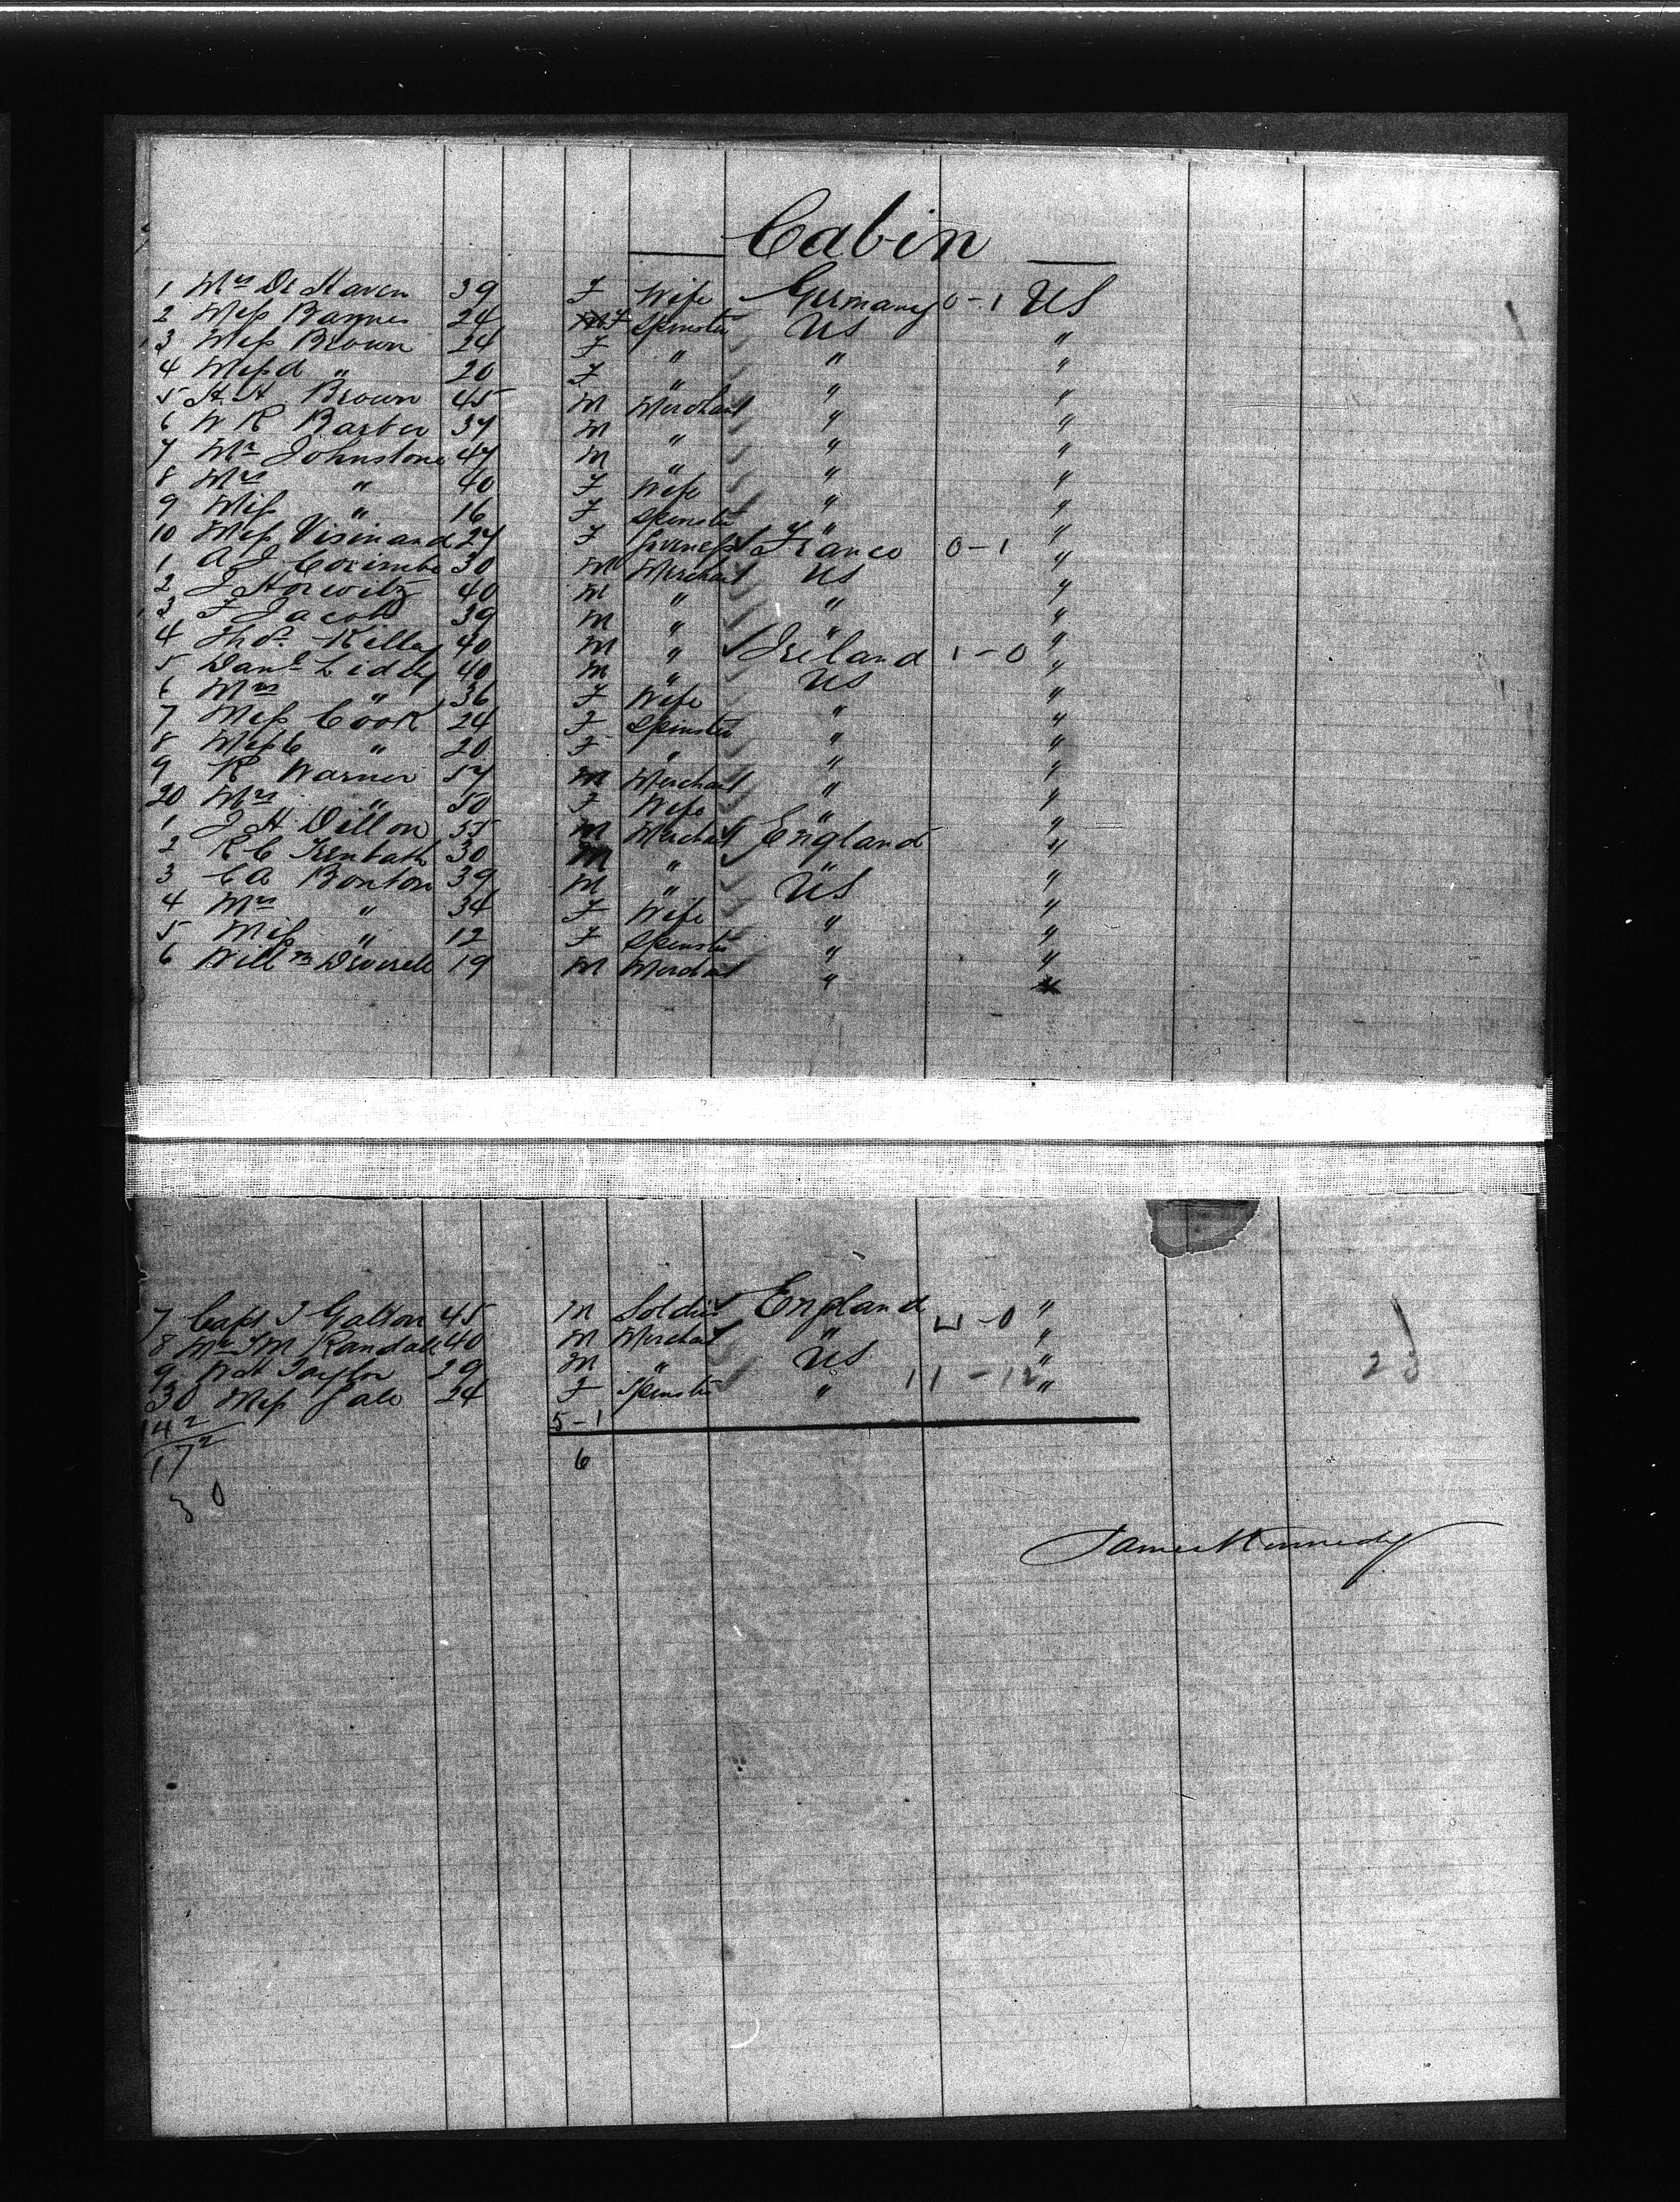 Cabin
1 Mrs De Haven 39 F Wife Germany 0-1 US
2 Miss Barnes 24 F Spinster US "
3 Miss Brown 24 F " " "
4 Miss d " 20 F " " "
5 H. H. Brown 45 M Merchant " "
6 W R Barber 37 M " " "
7 Mr Johnstone 47 M " " "
8 Mrs " 40 F Wife " "
9 Miss " 16 F Spinster " "
10 Miss Visinand 27 F France 0-1 "
1 A J 30 M Merchant US "
2 J Horwitz 40 M " " "
3 F Jacobs 39 M " " "
4 Thos. Killey 40 M " Ireland 1-0 "
5 Danl Liddy 40 M " US "
6 Mrs " 36 F Wife " "
7 Miss Cook 24 F Spinster " "
8 Miss C " 20 F " " "
9 R Warner 57 M Merchant " "
20 Mrs " 50 F Wife " "
1 J H Dillon 55 M Merchant England "
2 R C 30 M " " "
3 C A Bonton 39 M " US "
4 Mrs " 34 F Wife " "
5 Miss " 12 F Spinster " "
6 Willm 19 M Merchant " "
7 Capt J Galton 45 M Soldier England 4-0 "
8 Mr J M Randall 40 M Merchant " "
9 W H Taylor 29 M " US "
30 Miss Gale 24 F Spinster " 11-12 " 23
142 5-1
172 6
30
James Kennedy